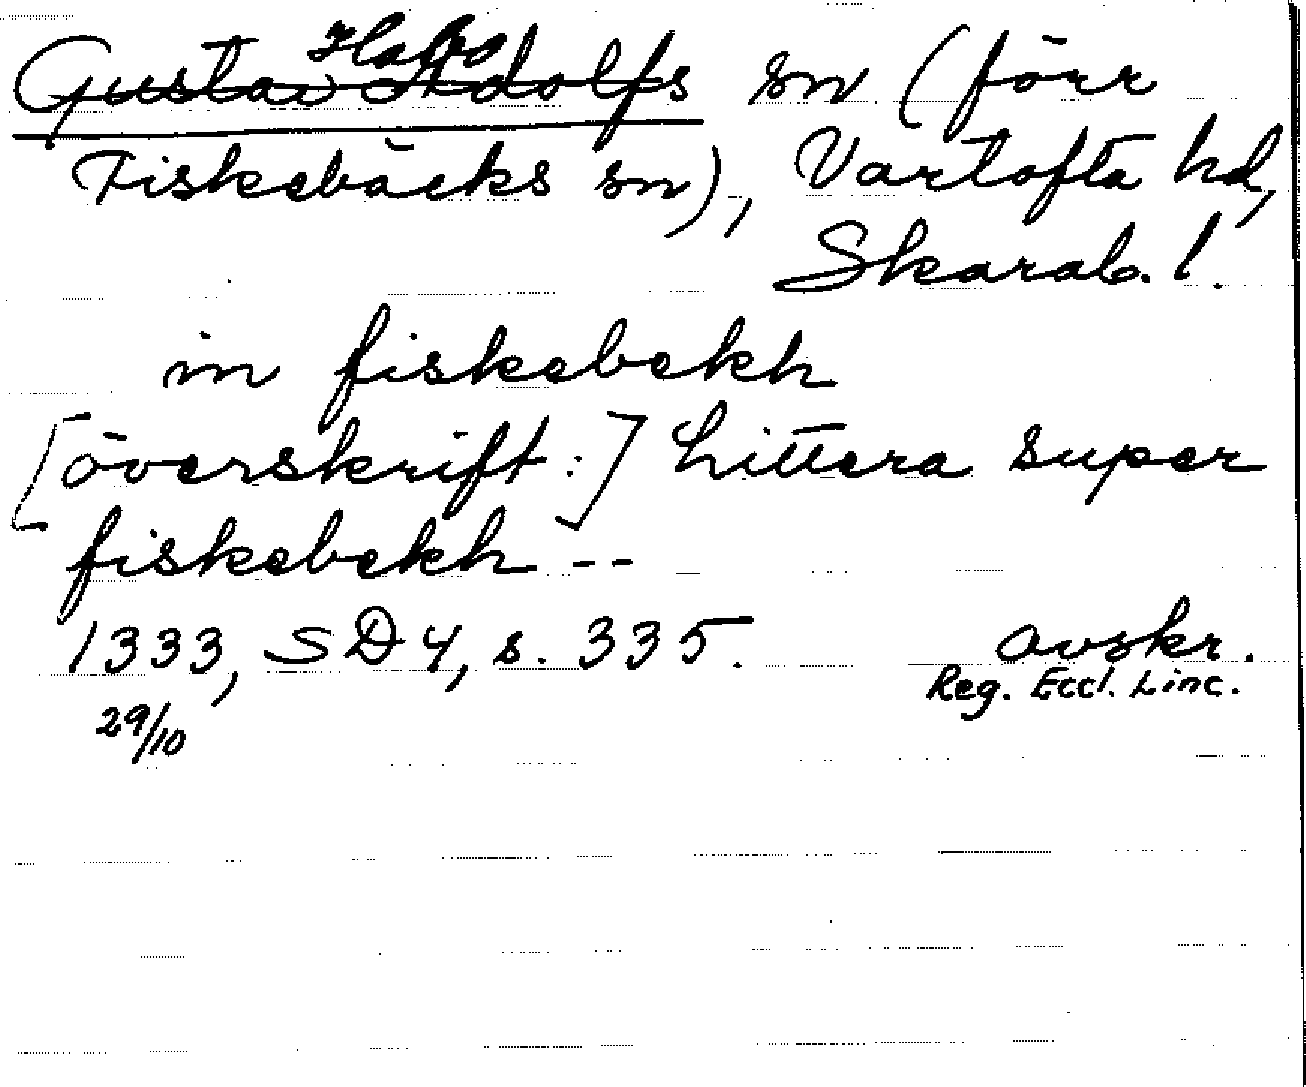 Habo
Gustav Adolfs sn (förr
Fiskebäcks sn), Vartofta hd,
Skarab. l.
in fiskebekh
[överskrift:] Littera super
fiskebekh --
1333, SD 4, s. 335. avskr.
Reg. Eccl. Linc.
29/10